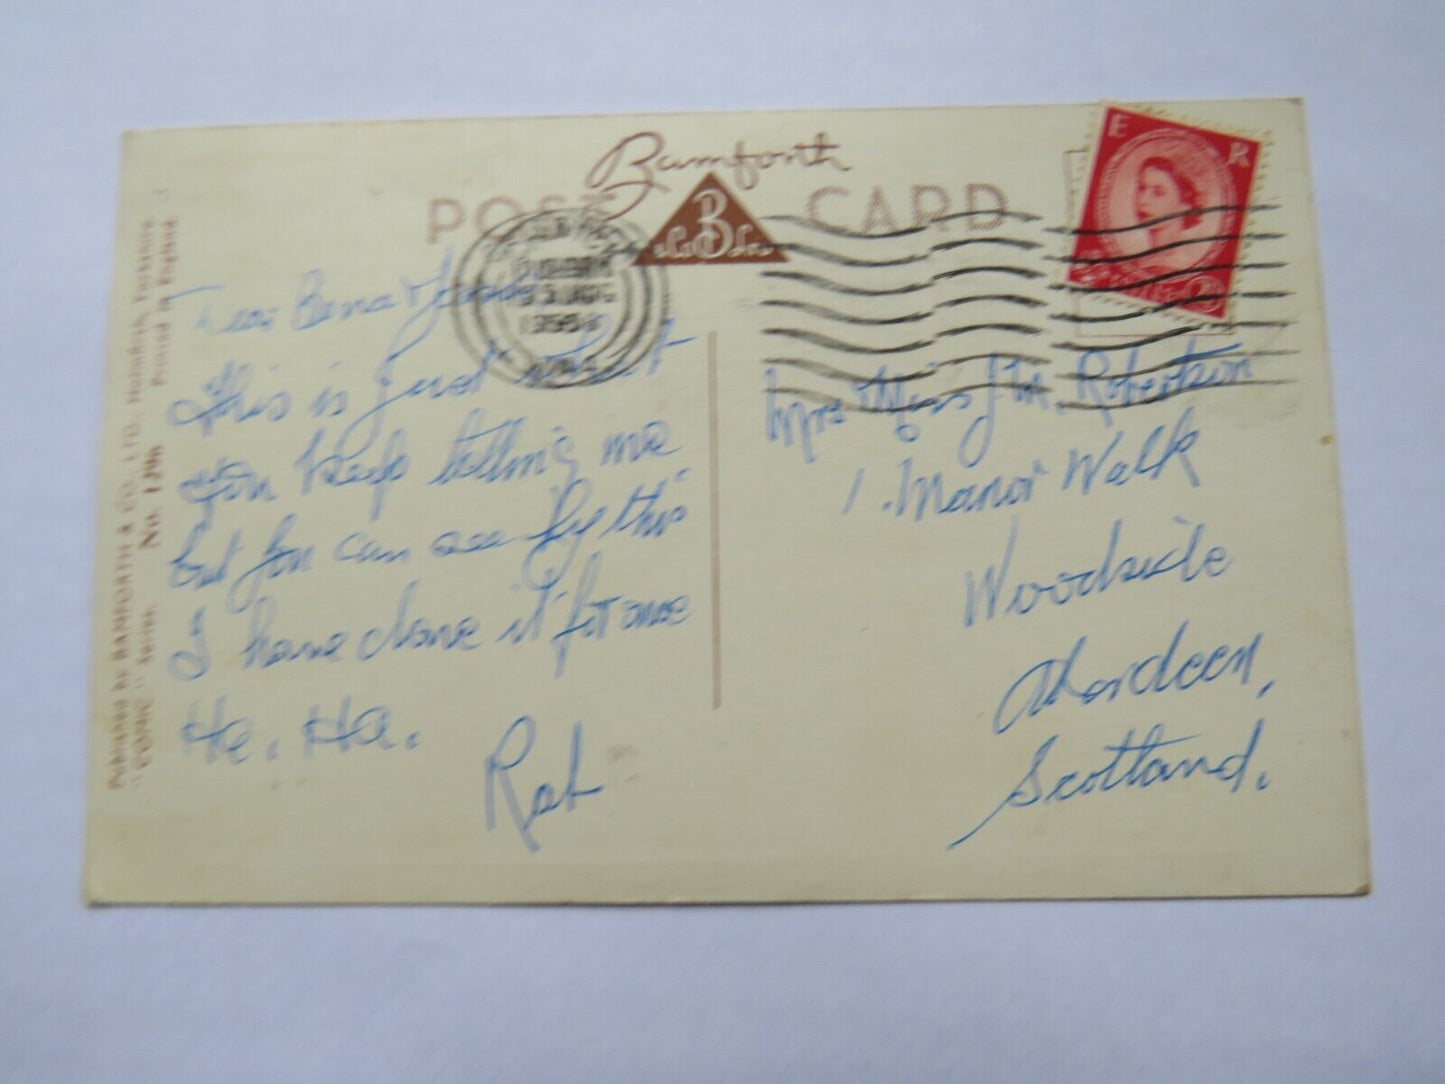 Published by BAMFORTH & CO., LTD. Holmfirth, Yorkshire
"COMIC" Series. No. 1296 Printed in England
Bamforth
POST CARD
E R
1956
Dear Bena &
this is Just what
you keep telling me
but you can see by this
I have done it for once
Ha. Ha.
Rab
Mrs Miss J M. Robertson
1. Manor Walk
Woodside
Aberdeen,
Scotland.